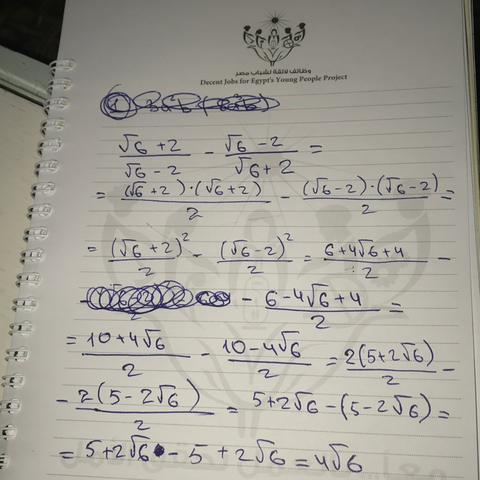 وظائف لائقة لشباب مصر
Decent Jobs for Egypt's Young People Project
①
(√6 + 2)/(√6 - 2) - (√6 - 2)/(√6 + 2) =
= ((√6 + 2)·(√6 + 2))/2 - ((√6 - 2)·(√6 - 2))/2 =
= (√6 + 2)²/2 - (√6 - 2)²/2 = (6 + 4√6 + 4)/2 -
- (6 - 4√6 + 4)/2 =
= (10 + 4√6)/2 - (10 - 4√6)/2 = 2(5 + 2√6)/2 -
- 2(5 - 2√6)/2 = 5 + 2√6 - (5 - 2√6) =
= 5 + 2√6 - 5 + 2√6 = 4√6